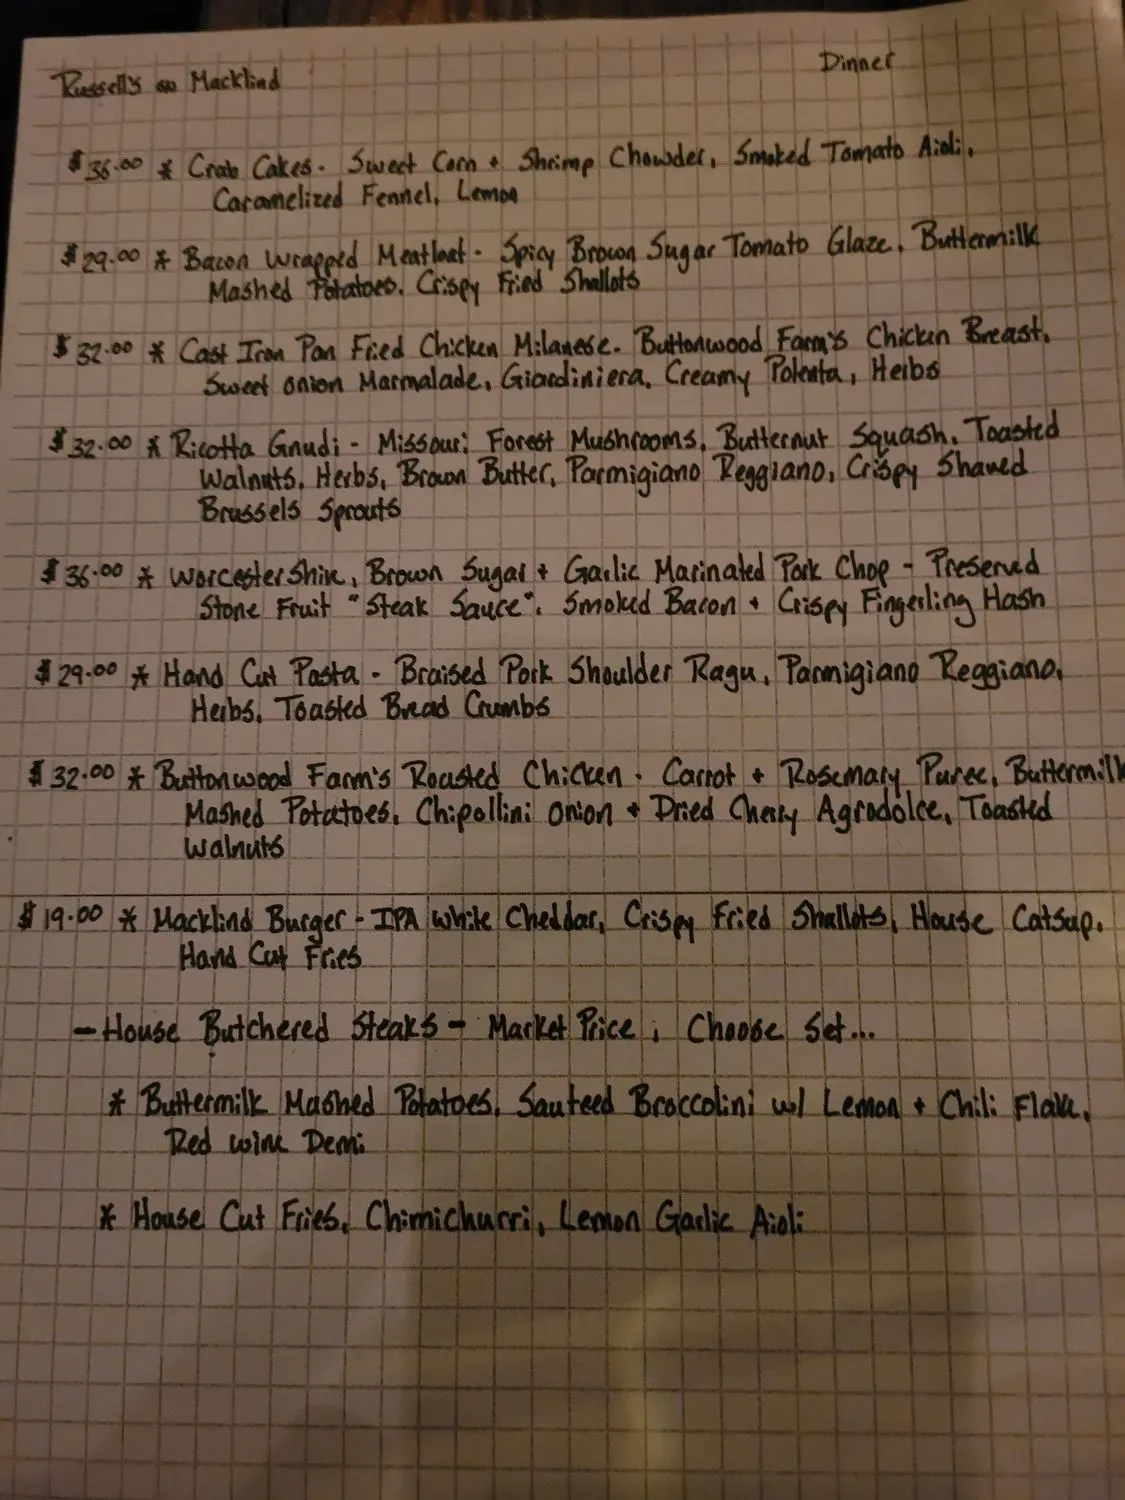 Russell's on Macklind
Dinner
$36.00 * Crab Cakes - Sweet Corn + Shrimp Chowder, Smoked Tomato Aioli,
Caramelized Fennel, Lemon
$29.00 * Bacon Wrapped Meatloaf - Spicy Brown Sugar Tomato Glaze, Buttermilk
Mashed Potatoes, Crispy Fried Shallots
$32.00 * Cast Iron Pan Fried Chicken Milanese - Buttonwood Farm's Chicken Breast,
Sweet onion Marmalade, Giardiniera, Creamy Polenta, Herbs
$32.00 * Ricotta Gnudi - Missouri Forest Mushrooms, Butternut Squash, Toasted
Walnuts, Herbs, Brown Butter, Parmigiano Reggiano, Crispy Shaved
Brussels Sprouts
$36.00 * Worcestershire, Brown Sugar + Garlic Marinated Pork Chop - Preserved
Stone Fruit "Steak Sauce", Smoked Bacon + Crispy Fingerling Hash
$29.00 * Hand Cut Pasta - Braised Pork Shoulder Ragu, Parmigiano Reggiano,
Herbs, Toasted Bread Crumbs
$32.00 * Buttonwood Farm's Roasted Chicken - Carrot + Rosemary Puree, Buttermilk
Mashed Potatoes, Chipollini Onion + Dried Cherry Agrodolce, Toasted
Walnuts
$19.00 * Macklind Burger - IPA White Cheddar, Crispy Fried Shallots, House Catsup,
Hand Cut Fries
- House Butchered Steaks - Market Price, Choose Set...
* Buttermilk Mashed Potatoes, Sauteed Broccolini w/ Lemon + Chili Flake,
Red Wine Demi
* House Cut Fries, Chimichurri, Lemon Garlic Aioli